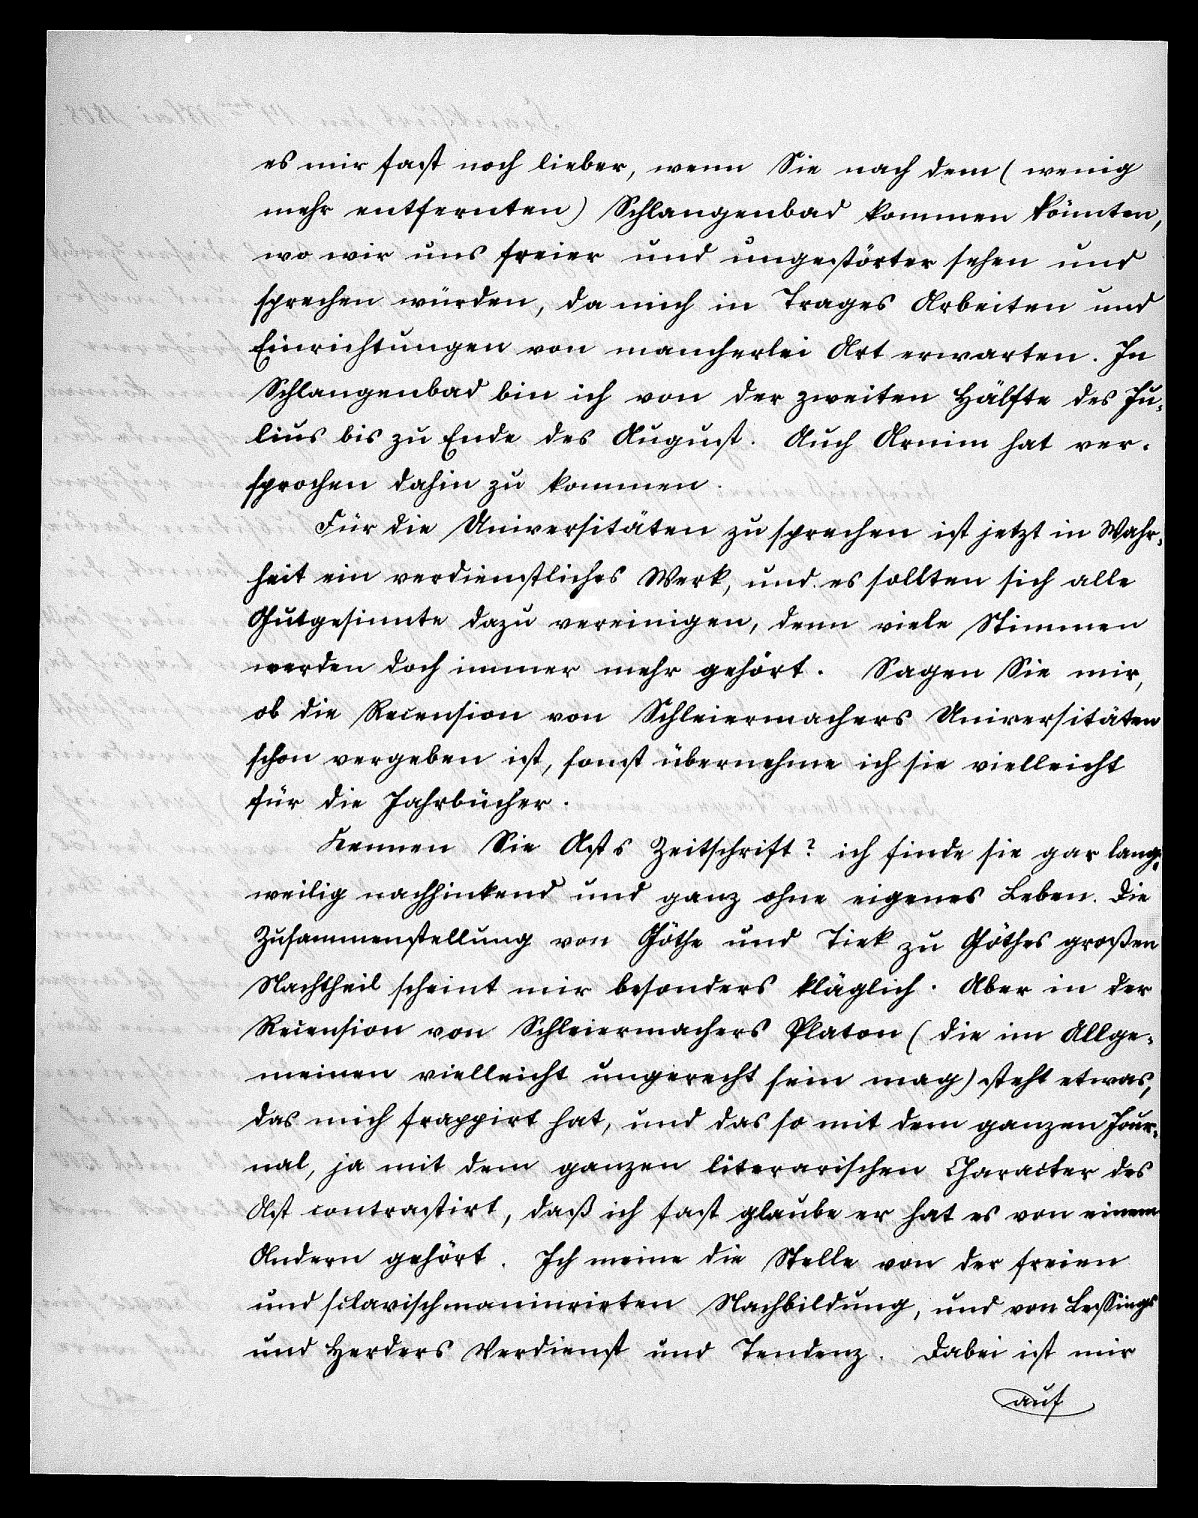 es mir fast noch lieber, wenn Sie nach dem (wenig
mehr entfernten) Schlangenbad kommen könnten,
wo wir uns freier und ungestörter sehen und
sprechen würden, da mich in Trages Arbeiten und
Einrichtungen von mancherlei Art erwarten. In
Schlangenbad bin ich von der zweiten Hälfte des Ju-
lius bis zu Ende des August. Auch Arnim hat ver-
sprochen dahin zu kommen.
Für die Universitäten zu sprechen ist jetzt in Wahr-
heit ein verdienstliches Werk, und es sollten sich alle
Gutgesinnte dazu vereinigen, denn viele Stimmen
werden doch immer mehr gehört. Sagen Sie mir,
ob die Recension von Schleiermachers Universitäten
schon vergeben ist, sonst übernehme ich sie vielleicht
für die Jahrbücher.
Kennen Sie Asts Zeitschrift? ich finde sie gar lang-
weilig nachhinkend und ganz ohne eigenes Leben. Die
Zusammenstellung von Göthe und Tiek zu Göthes großen
Nachtheil scheint mir besonders kläglich. Aber in der
Recension von Schleiermachers Platon (die im Allge-
meinen vielleicht ungerecht sein mag) steht etwas,
das mich frappirt hat, und das so mit dem ganzen Jour-
nal, ja mit dem ganzen literarischen Character des
Ast contrastirt, daß ich fast glaube er hat es von einem
Andern gehört. Ich meine die Stelle von der freien
und sclavisch manirirten Nachbildung, und von Lessings
und Herders Verdienst und Tendenz. Dabei ist mir
auf